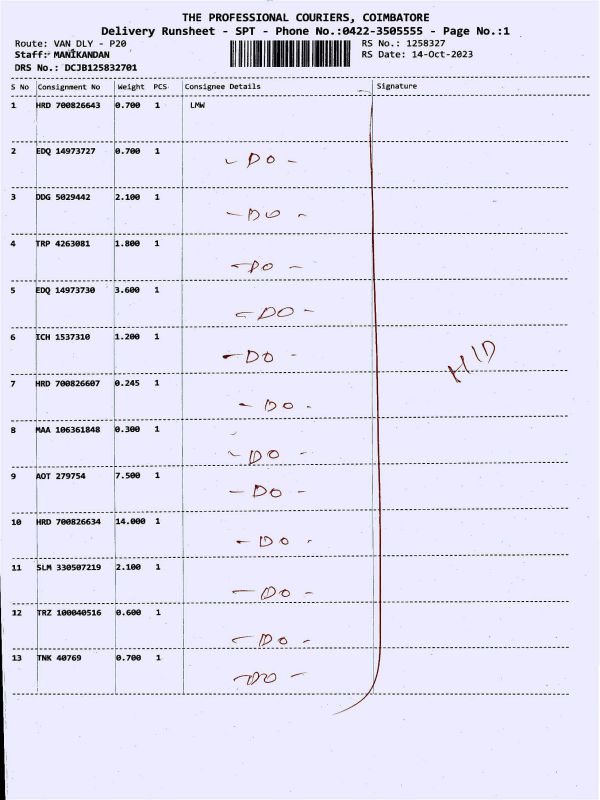 THE PROFESSIONAL COURIERS, COIMBATORE
Delivery Runsheet - SPT - Phone No.:0422-3505555 - Page No.:1
Route: VAN DLY - P20 RS No.: 1258327
Staff: MANIKANDAN RS Date: 14-Oct-2023
DRS No.: DCJB125832701
S No Consignment No Weight PCS Consignee Details Signature
1 HRD 700826643 0.700 1 LMW
2 EDQ 14973727 0.700 1 - DO -
3 DDG 5029442 2.100 1 - DO -
4 TRP 4263081 1.800 1 - DO -
5 EDQ 14973730 3.600 1 - DO -
6 ICH 1537310 1.200 1 - DO -
H/D
7 HRD 700826607 0.245 1 - DO -
8 MAA 106361848 0.300 1 - DO -
9 AOT 279754 7.500 1 - DO -
10 HRD 700826634 14.000 1 - DO -
11 SLM 330507219 2.100 1 - DO -
12 TRZ 100040516 0.600 1 - DO -
13 TNK 40769 0.700 1 - DO -